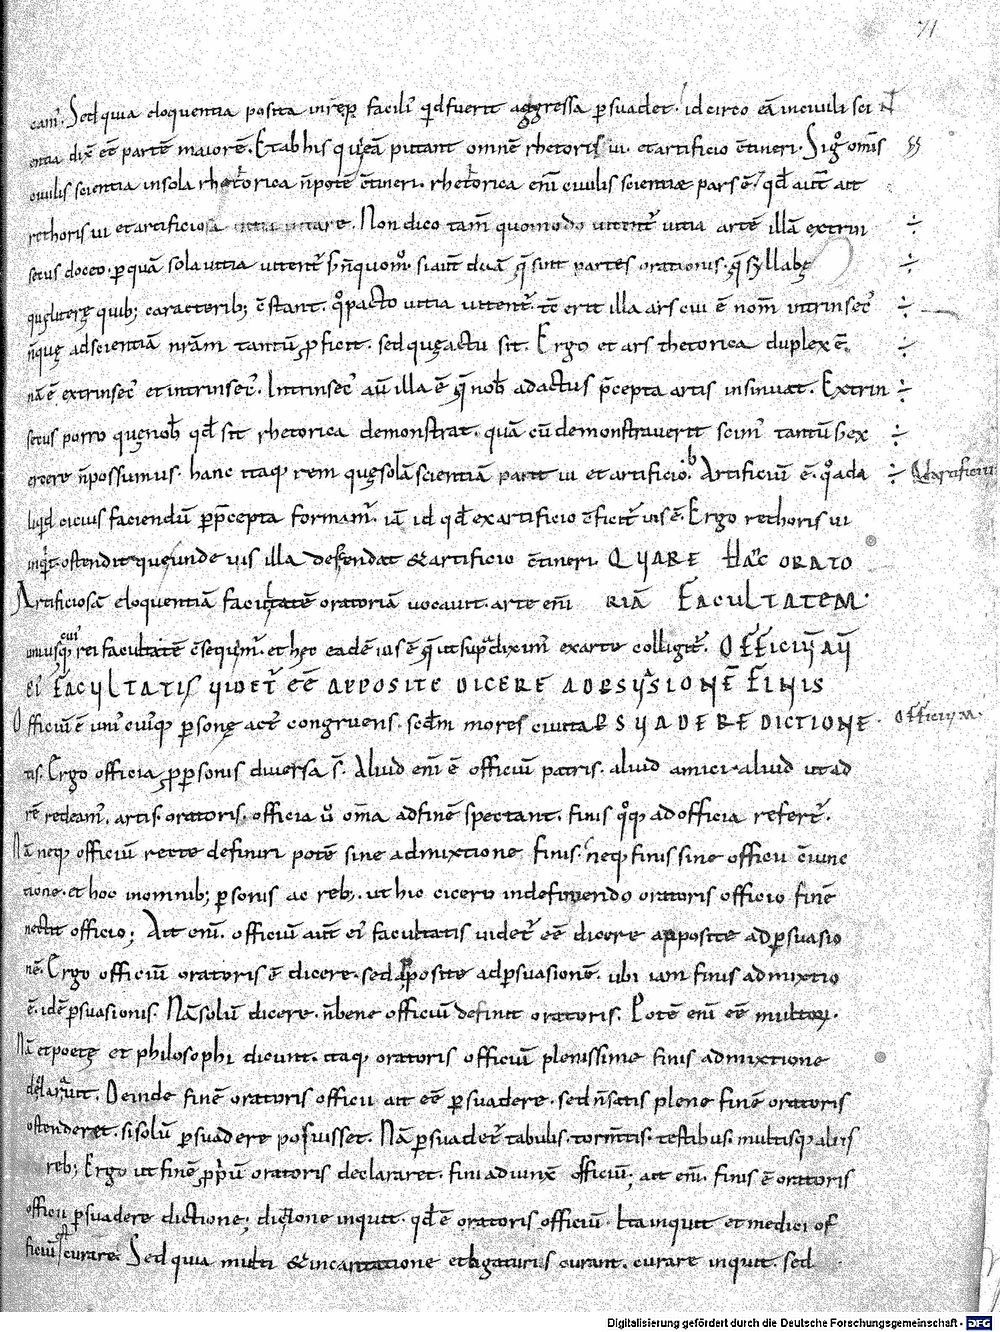 71
cam̄. Sed quia eloquentia posita in rep̄ facili᷒ qd fuerit aggressa p suadet. id circo eā in ciuili sci
entia dix̄ eē partē maiorē. Et ab his q̄ eā putant omnē rhetoris ui. et artificio c̄tineri. Si ḡ om̄is
ciuilis scientia in sola rhetorica n̄ potē c̄tineri. rhetorica eni ciuilis scientiae pars ē. qđ aut̄ ait
rethoris ui et artificiosa Non dico tam̄ quomodo utent̄ uitia arte illā extrin
secus doceo. p quā sola uitia uitent̄ si aut̄ dicā q̄ sint partes orationis. q̄ syllabę
quę literę quib; caracterib; c̄stant. qͦ pacto uitia uitent̄. tc̄ erit illa ars cui ē nom̄ intrinsec᷒
n̄ quę ad scientiā nr̄am tantū ꝓficit. sed quę actu sit. Ergo et ars rhetorica duplex ē.
nā ē extrinsec᷒ et intrinsec᷒. Intrinsec᷒ aū illa ē q̄ nob̄ ad actus p̄cepta artis insinuat. Extrin
secus porro quę nob̄ qđ sit rhetorica demonstrat. quā cū demonstrauerit scim᷒ tantū s; ex
ercere n̄ possumus. hanc itaq; rem quę solā scientiā parit ui et artificio. Artificiū ē. qͦ ad a
Artificiū
liqd ocius faciendū p p̄cepta formam᷒. iā id qđ ex artificio efficit̄ uis ē. Ergo rethoris ui
inqt. ostendit que unde uis illa defendat & artificio c̄tineri QUARE HĀC ORATO
Artificiosā eloquentiā facultatē oratoriā uocauit. arte eni RIĀ FACULTATEM.
unius cui᷒q; rei facultatē c̄sequim᷒. et hęc eadē uis ē q̄ ut sup̄ dixim᷒ ex arte colligit̄. OFFICIŪ AŪ
ei᷒ FACULTATIS UIDET̄ EĒ APPOSITE DICERE AD P SUASIONĒ FINIS
Officiū ē uni᷒ cui᷒q; psonę act᷒ congruens. scd̄m mores ciuita PSUADERE DICTIONE. officium.
tis. Ergo officia ꝓ psonis diuersa s̄. Aliud eni ē officiū patris. aliud amici. aliud ut ad
rē redeam᷒. artis. oratoris. officia ū om̄a ad finē spectant. finis qͦq; ad officia refert̄.
Nā neq; officiū recte definiri potē sine admixtione finis. neq; finis sine officii c̄iunc
tione. et hoc in omnib; psonis ac reb;. ut hic cicero in definiendo oratoris officio finē
nectit officio; Ait eni. officiū aut̄ ei᷒ facultatis uidet̄ eē dicere apposite ad psuasio
nē. Ergo officiū oratoris ē dicere. sed apposite ad psuasionē. ubi iam finis admixtio
ē. idē psuasionis. Nā solū dicere. n̄ bene officiū definit oratoris. Potē eni eē multoꝝ.
Nā et poetę et philosophi dicunt. itaq; oratoris officiū plenissime finis admixtione
declarauit. Deinde finē oratoris officii ait eē psuadere. sed n̄ satis plene finē oratoris
ostenderet. si solū psuadere posuisset. Nā psuadet̄ tabulis. torm̄tis. testibus. multisq; aliis
reb; Ergo ut finē ꝓpriū oratoris declararet. fini adiunx̄ officiū; ait eni. finis ē oratoris
officii psuadere dictione; dictione inquit. qđ ē oratoris officiū. Ita inquit et medici of
ficiū ē curare. Sed quia multi & incantatione et ligaturis curant. curare inquit. sed
Digitalisierung gefördert durch die Deutsche Forschungsgemeinschaft - DFG